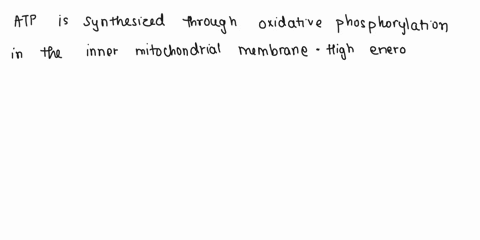 ATP is synthesized through oxidative phosphorylation
in the inner mitochondrial membrane. High enero